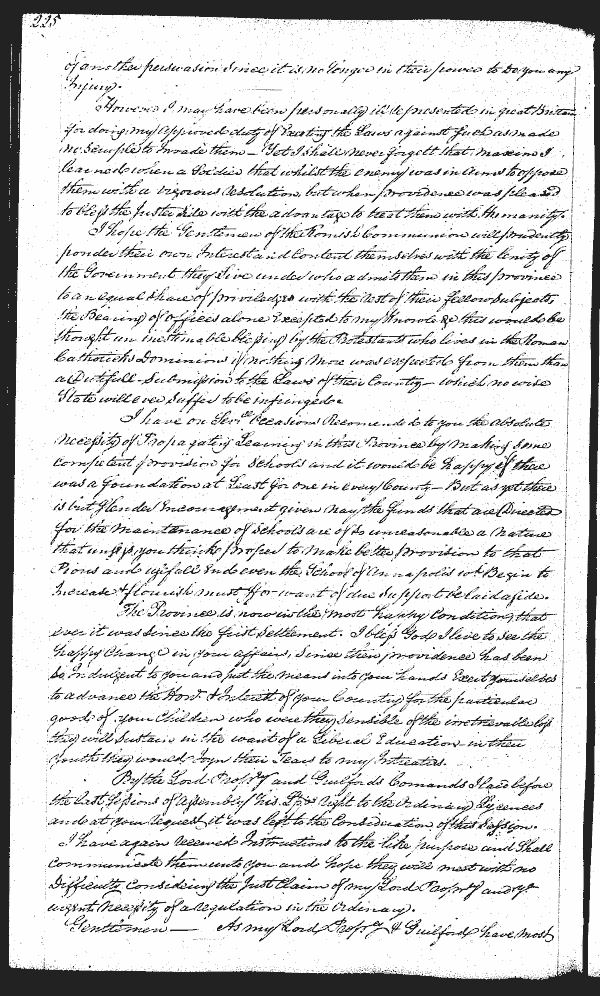 225
of another persuasion since it is no longer in their power to Do you any
Injury.
However I may have been personally ill Represented in great Britain
for doing my approved duty of Exerting the Laws against such as made
no Scruple to invade them - Yet I shall never forgett that maxim I
learned when a Soldier that whilst the enemy was in Arms to oppose
them with a vigorous resolution, but when providence was pleased
to bless the Juster side with the advantage to treat them with Humanity.
I hope the Gentlemen of the Romish Communion will prudently
ponder their own Interest and Content themselves with the lenity of
the Government they live under who admits them in this province
to an equal share of priviledges with the rest of their fellow subjects
the Bearing of offices alone Excepted to my Knowledge this would be
thought an inestimable blessing by the Protestants who lives in the Roman
Catholicks Dominions if nothing more was expected from them than
a Dutifull Submission to the Laws of their County - which no wise
State will ever suffer to be infringed.
I have on Sevll Occasions Recomended to you the absolute
necessity of Propagating Learning in this Province by making some
competent provision for Schools and it would be happy if there
was a foundation at Least for one in every County - But as yet there
is but slender Encouragement given nay the funds that are Directed
for the Maintenance of Schools are of so unreasonable a Nature
that unless you think proper to make better provision to that
Pious and usefull End even the School of Annapolis wch Begin to
Increase & flourish must for want of due Support be laid aside.
The Province is now in the most happy Condition that
ever it was since the first Settlement. I bless God I live to see the
happy Change in your affairs, since then providence has been
so Indulgent to you and put the means into your hands Exert yourselves
to advance the Honr & Interest of your Country for the particular
good of your Children who were they sensible of the irretrevable loss
they will sustain in the want of a Liberal Education in their
youth they would Joyn their Tears to my Intreaties.
By the Lord Propry and Guilfords Comands I laid before
the last Sessions of Assembly his Lps Right to the Ordinary Lycences
and at your request it was left to the Consideration of this Session.
I have again received Instructions to the like purpose and Shall
communicate them unto you and hope they will meet with no
Difficulty Considering the Just Claim of my Lord Propry and ye
urgent necessity of a regulation in the Ordinary.
Gentlemen - As my Lord Propry & Guilford have most